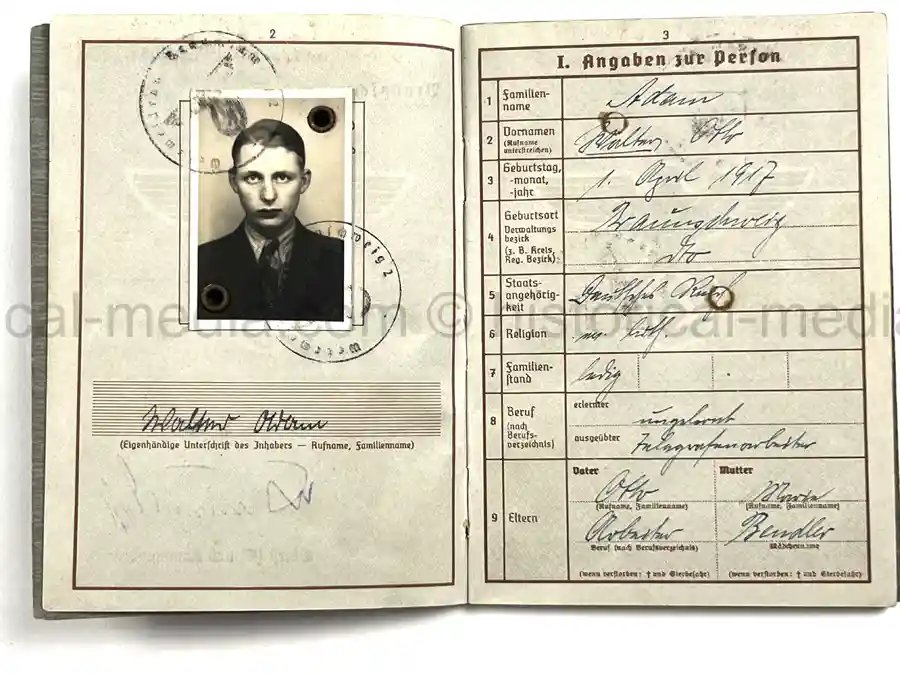 2
Walter Adam
(Eigenhändige Unterschrift des Inhabers — Rufname, Familienname)
3
I. Angaben zur Person
1 Familien-
name
Adam
2 Vornamen
(Rufname
unterstreichen)
Walter Otto
3 Geburtstag,
-monat,
-jahr
1. April 1917
4 Geburtsort
Verwaltungs
bezirk
(z. B. Kreis,
Reg. Bezirk)
Braunschweig
dto
5 Staats-
angehörig-
keit
Deutsches Reich
6 Religion
luth.
7 Familien-
stand
ledig
8 Beruf
(nach
Berufs-
verzeichnis)
erlernter
ungelernt
ausgeübter
Telegrafenarbeiter
9 Eltern
Vater Mutter
Otto Marie
(Rufname, Familienname) (Rufname, Familienname)
Arbeiter Bendler
Beruf (nach Berufsverzeichnis) Mädchenname
(wenn verstorben: † und Sterbejahr) (wenn verstorben: † und Sterbejahr)
cal-media.com © historical-media